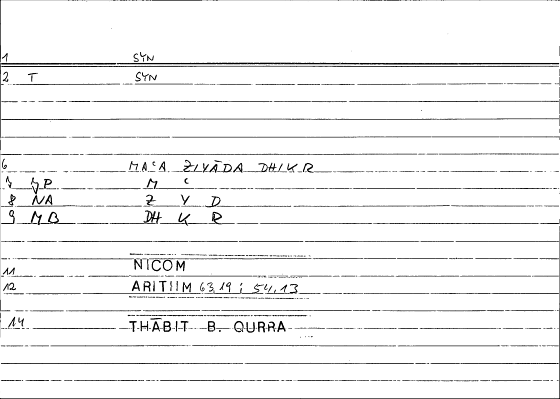 1 SYN
2 T SYN
6 MAʿA ZIYĀDA DHIKR
7 MP M ʿ
8 NA Z Y D
9 MB DH K R
11 NICOM
12 ARITIIM 63,19 ; 54,13
14 THĀBIT B. QURRA